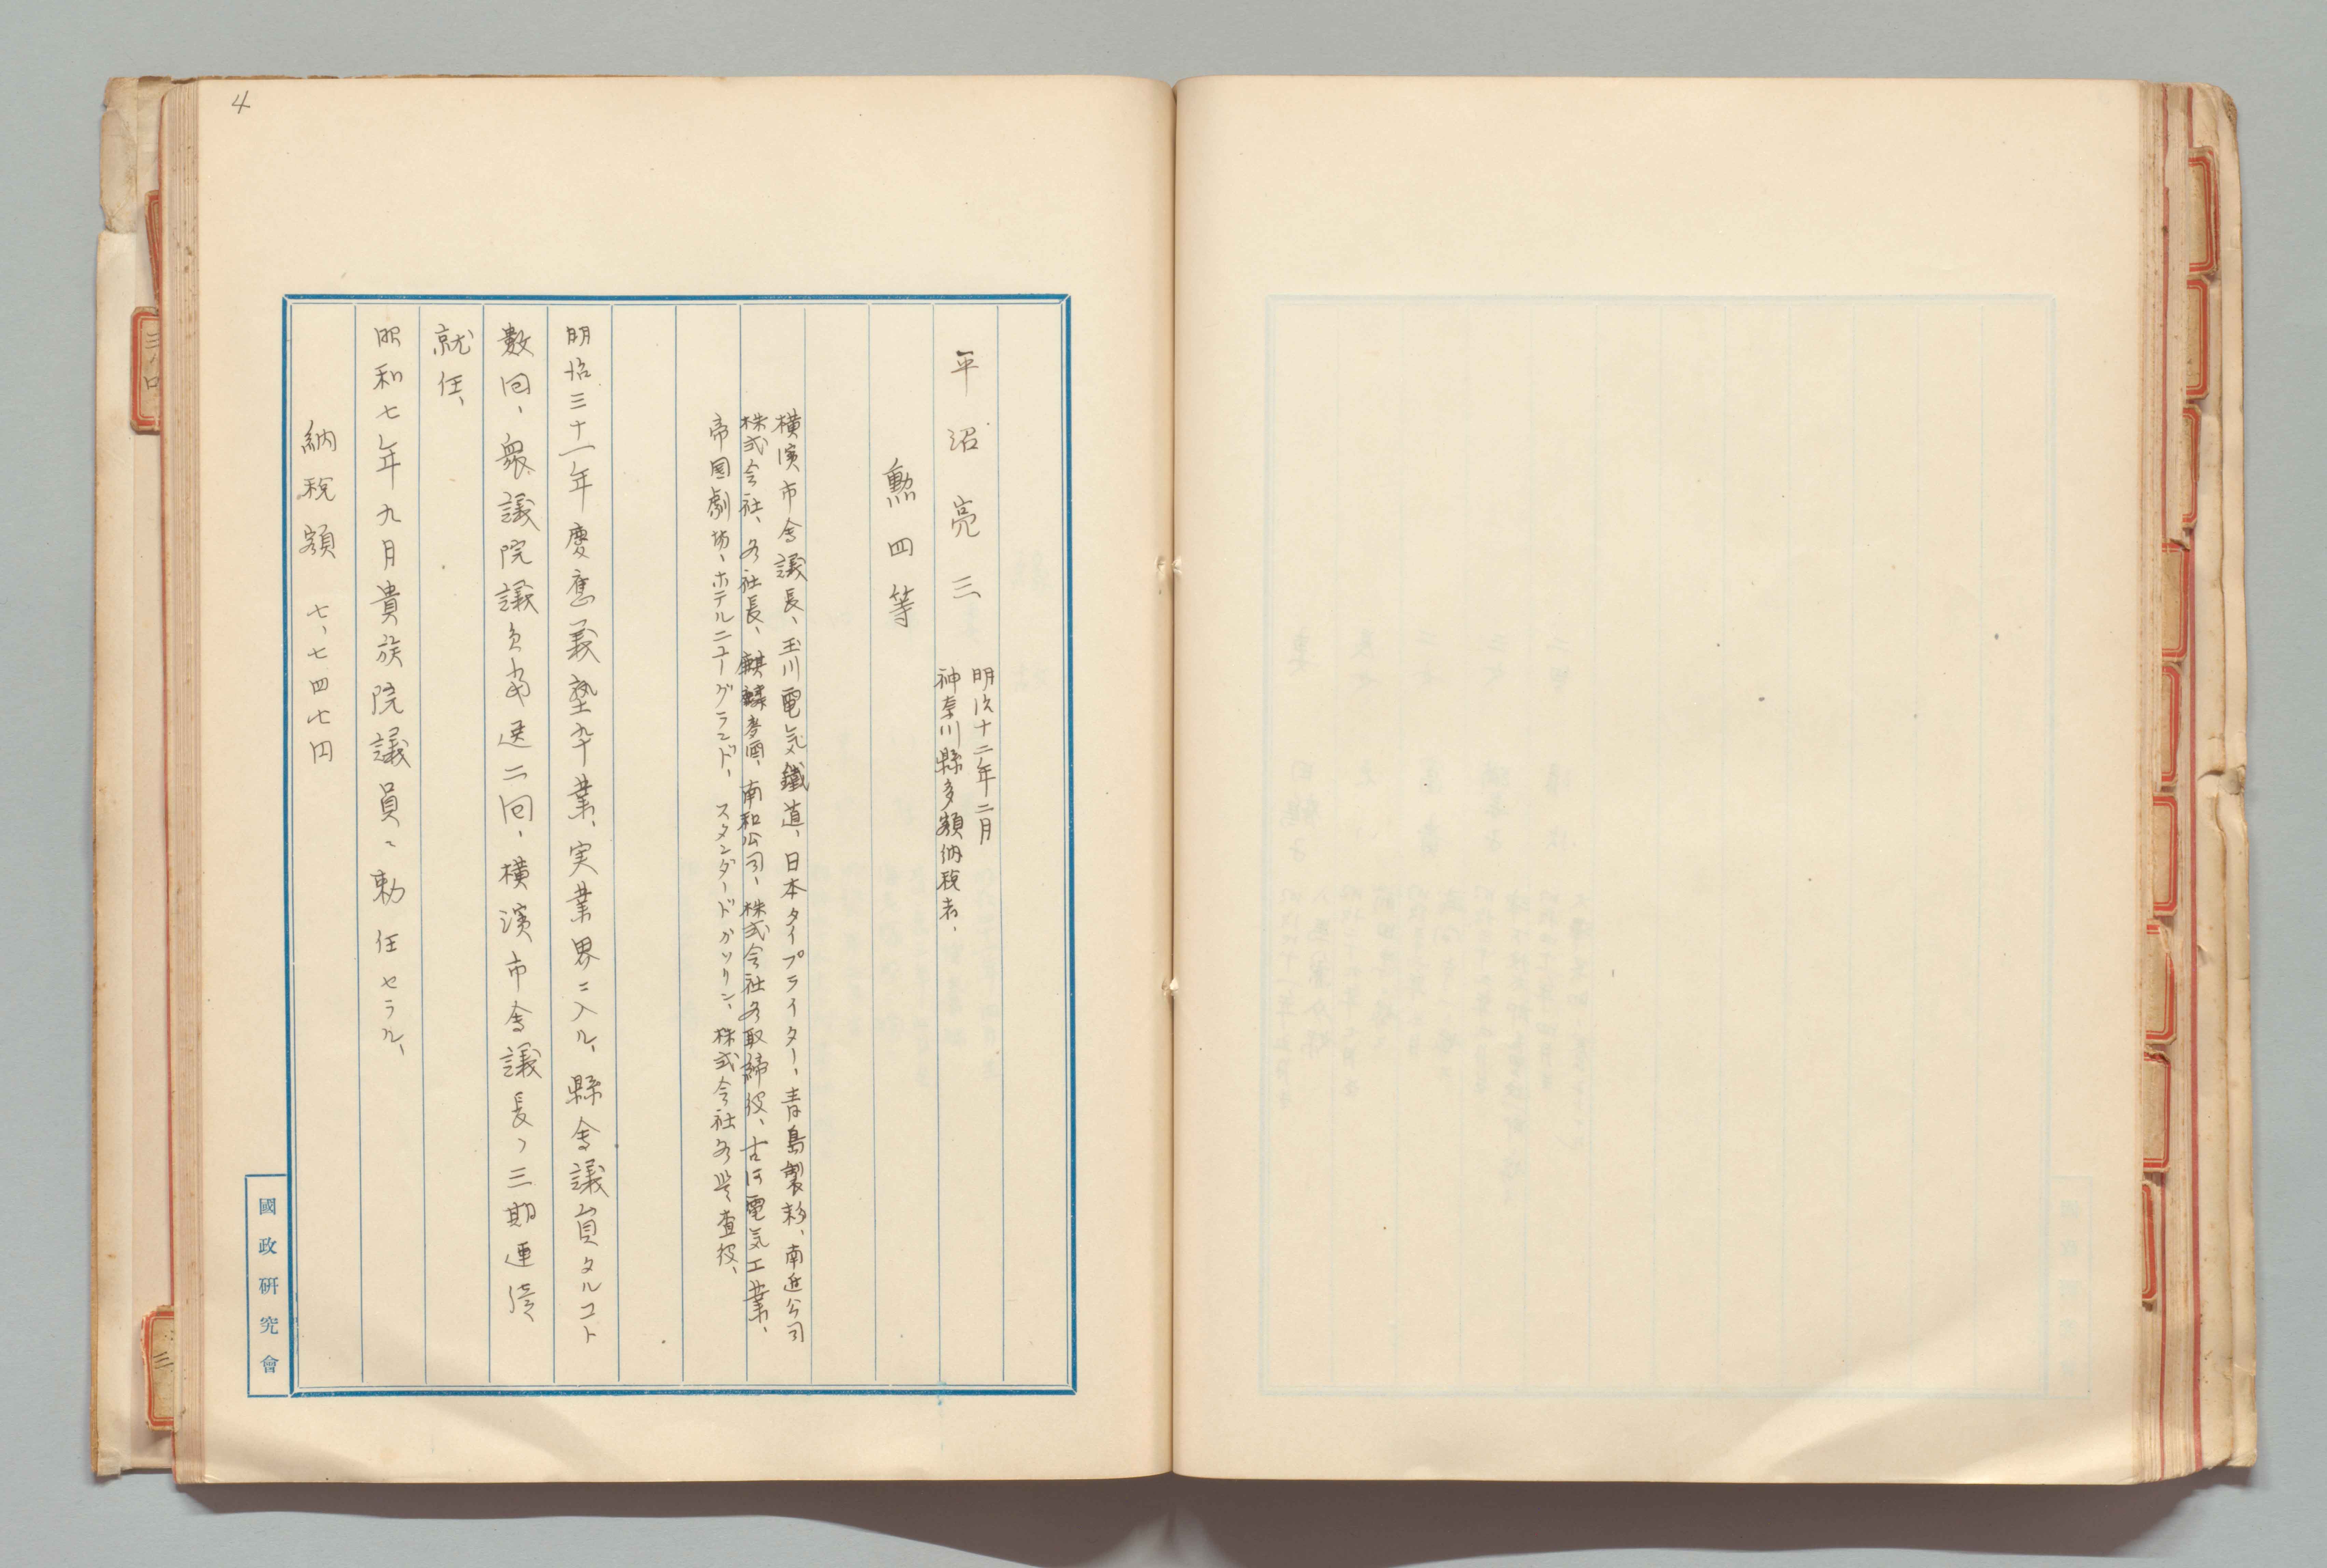 4
平沼亮三
明治十二年二月
神奈川縣多額納税者、
勲四等
横濱市会議長、玉川電気鐵道、日本タイプライター、青島製粉、南進公司
株式会社、各社長、麒麟麦酒、南和公司、株式会社各取締役、古河電気工業、
帝国劇場、ホテルニューグランド、スタンダードガソリン、株式会社各監査役、
明治三十一年慶應義塾卒業、実業界ニ入ル、縣会議員タルコト
數回、衆議院議員当選二回、横濱市会議長ノ三期連続
就任、
昭和七年九月貴族院議員ニ勅任セラル、
納税額 七、七四七円
國政研究會
三ノ口
三